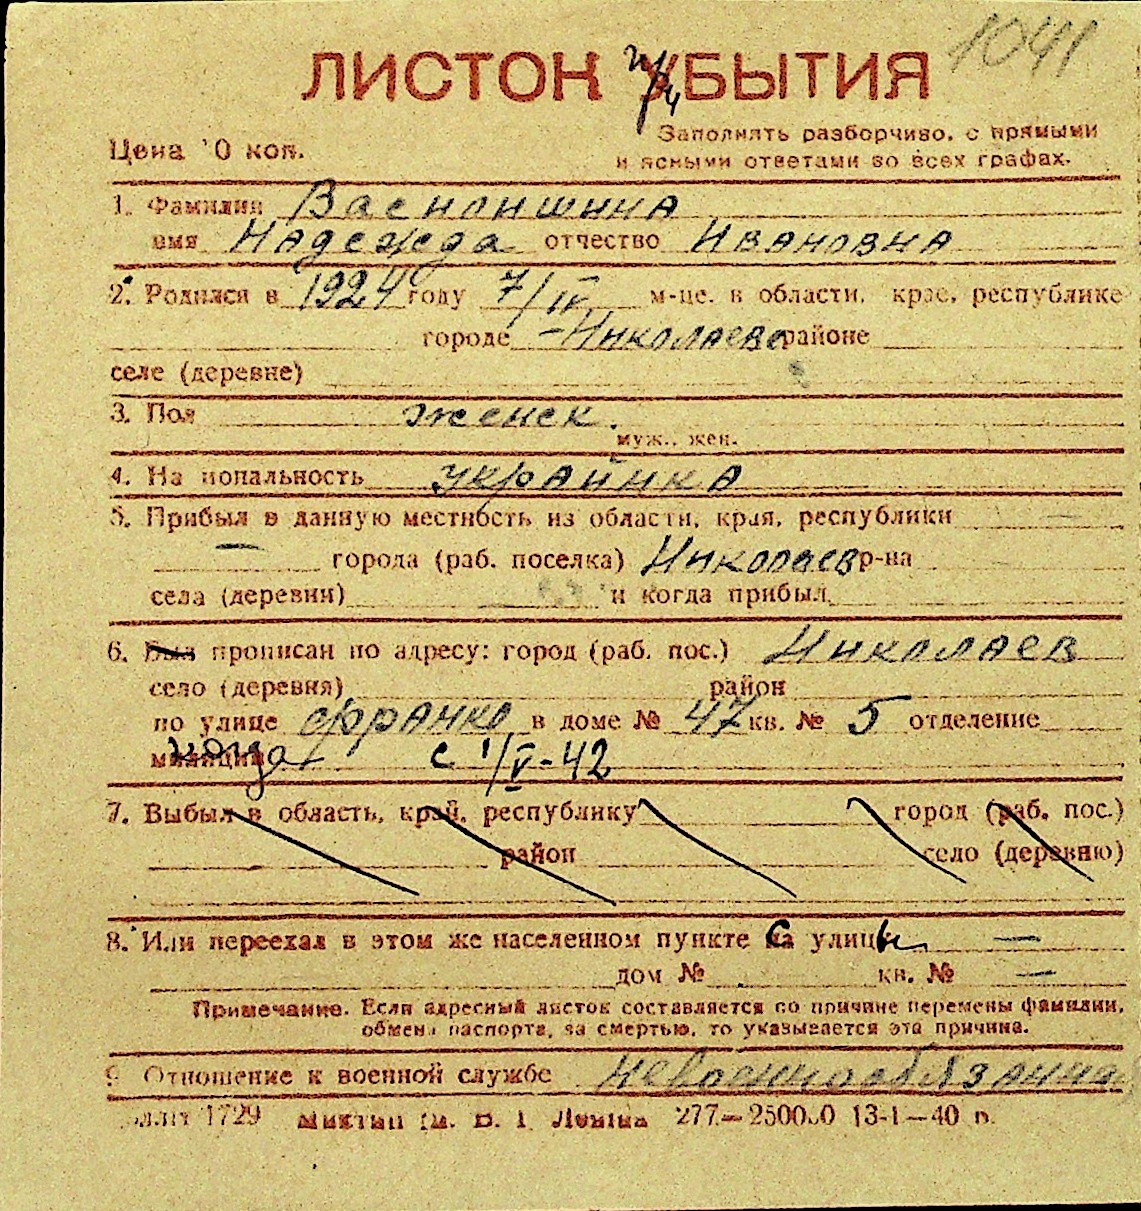 1041
ЛИСТОК УБЫТИЯ
Цена 10 коп.
Заполнять разборчиво, с прямыми
и ясными ответами во всех графах.
1. Фамилия Василишина
имя Надежда отчество Ивановна
2. Родился в 1924 году 7/IV м-це. в области, крае, республике
городе – Николаеве районе
селе (деревне)
3. Пол женск.
муж., жен.
4. Национальность украинка
5. Прибыл в данную местность из области, края, республики —
— города (раб. поселка) Николаев р-на
села (деревни) и когда прибыл
6. Был прописан по адресу: город (раб. пос.) Николаев
село (деревня) район
по улице Франко в доме № 47 кв. № 5 отделение
милиции когда с 1/V-42
7. Выбыл в область, край, республику город (раб. пос.)
район село (деревню)
8. Или переехал в этом же населенном пункте с улицы —
дом № кв. № —
Примечание. Если адресный листок составляется по причине перемены фамилии,
обмена паспорта, за смертью, то указывается эта причина.
9. Отношение к военной службе невоеннообязанная
1729 277—250000 13-1—40 г.